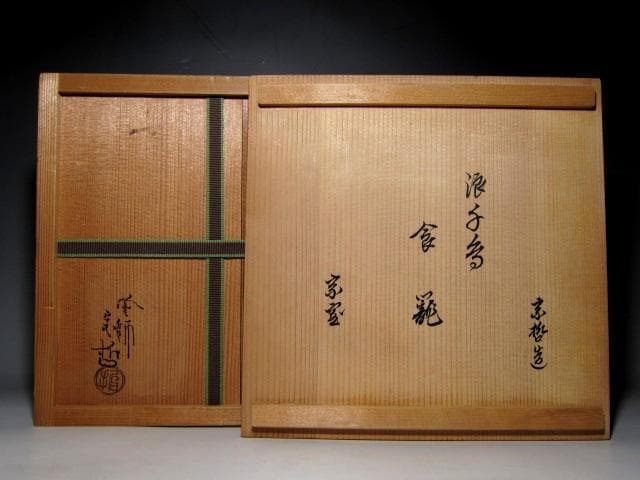 宗哲造
浪千鳥
食籠
宗室
塗師
宗哲